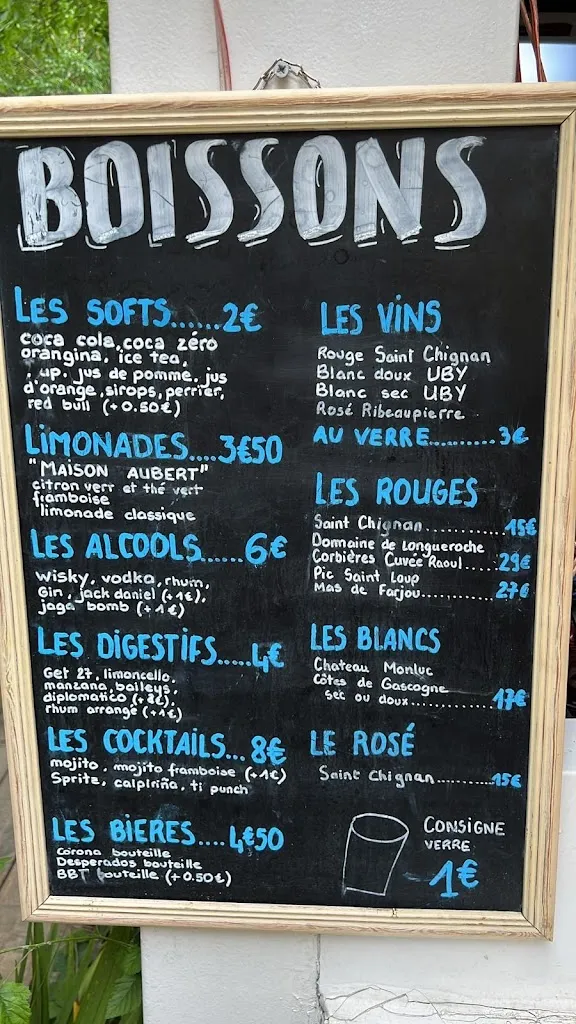 BOISSONS
LES SOFTS......2€
coca cola, coca zéro
orangina, ice tea,
up, jus de pomme, jus
d'orange, sirops, perrier,
red bull (+0.50€)
LIMONADES....3€50
"MAISON AUBERT"
citron vert et thé vert
framboise
limonade classique
LES ALCOOLS......6€
Wisky, vodka, rhum,
Gin, jack daniel (+1€),
jaga bomb (+1€)
LES DIGESTIFS.....4€
Get 27, limoncello,
manzana, baileys,
diplomatico (+2€),
rhum arrangé (+1€)
LES COCKTAILS...8€
mojito, mojito framboise (+1€)
Spritz, caïpiriña, ti punch
LES BIERES....4€50
Corona bouteille
Desperados bouteille
BBT bouteille (+0.50€)
LES VINS
Rouge Saint Chignan
Blanc doux UBY
Blanc sec UBY
Rosé Ribeaupierre
AU VERRE..........3€
LES ROUGES
Saint Chignan............15€
Domaine de Longueroche
Corbières Cuvée Raoul.....29€
Pic Saint Loup
Mas de Farjou...........27€
LES BLANCS
Chateau Monluc
Côtes de Gascogne
sec ou doux............17€
LE ROSÉ
Saint Chignan..........15€
CONSIGNE
VERRE
1€